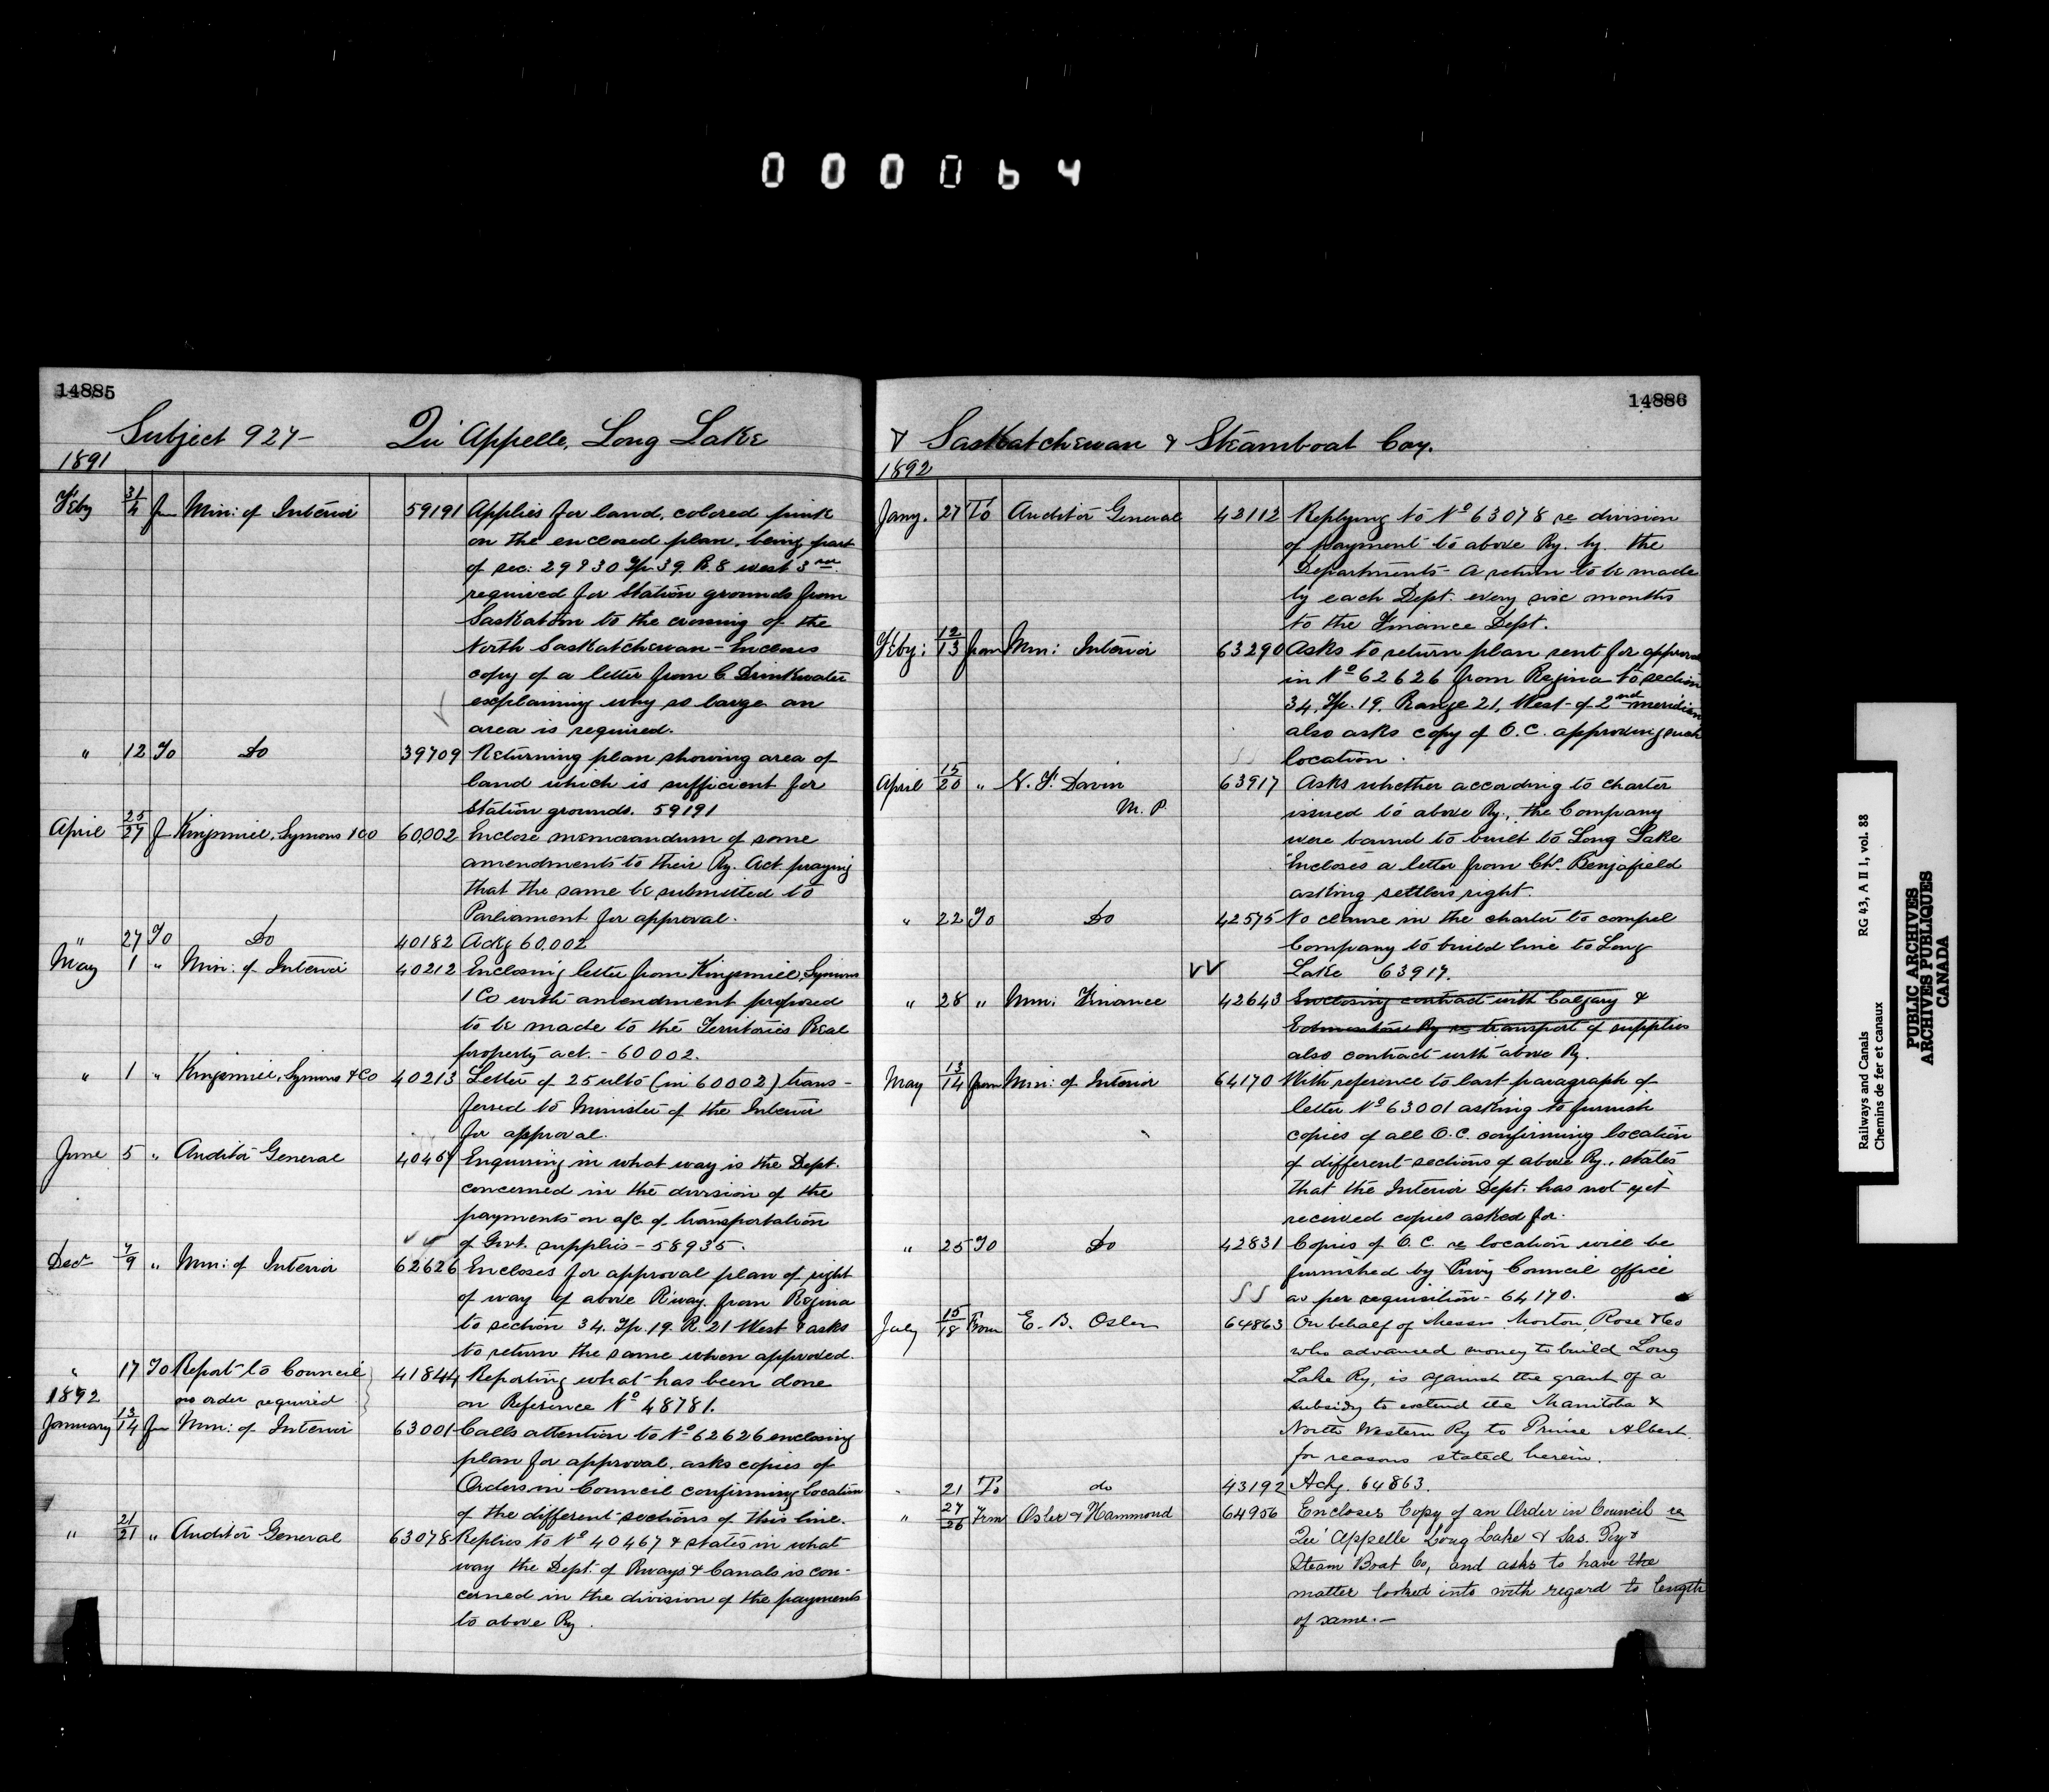 000064
14885
Subject 927- Qu'Appelle, Long Lake
1891
Feby 31/2 fm Min: of Interior 59191 Applies for land, colored pink
on the enclosed plan, being part
of sec: 29 & 30 Tp. 39. R. 8 west 3rd
required for Station grounds from
Saskatoon to the crossing of the
North Saskatchewan - Encloses
copy of a letter from C Drinkwater
explaining why so large an
area is required.
" 12 To Do 39709 Returning plan showing area of
land which is sufficient for
station grounds. 59191
April 25/27 f Kingsmill, Symons & Co 60,002 Enclose memorandum of some
amendments to their Ry. Act praying
that the same be submitted to
Parliament for approval.
" 27 To Do 40182 Ackg 60.002
May 1 " Min: of Interior 40212 Enclosing letter from Kingsmill, Symons
& Co with amendment proposed
to be made to the Territories Real
property act. - 60002.
" 1 " Kingsmill, Symons & Co 40213 Letter of 25 ulto (in 60002) trans-
ferred to Minister of the Interior
for approval.
June 5 " Auditor General 40467 Enquiring in what way is the Dept.
concerned in the division of the
payments on a/c. of transportation
of Govt. supplies - 58935.
Decr 7/9 " Min: of Interior 62626 Encloses for approval plan of right
of way of above R'way. from Regina
to section 34. Tp. 19. R. 21 West & asks
to return the same when approved.
" 17 To Report to Council 41844 Reporting what has been done
1892 no order required on Reference No 48781.
January 13/14 fm Min: of Interior 63001 Calls attention to No 62626 enclosing
plan for approval. asks copies of
Orders in Council confirming location
of the different sections of this line.
" 21/21 " Auditor General 63078 Replies to No 40467 & states in what
way the Dept. of Rways & Canals is con-
cerned in the division of the payments
to above Ry.
14886
& Saskatchewan & Steamboat Coy.
1892
Jany. 27 To Auditor General 42112 Replying to No 63078 re division
of payment to above Ry. by the
Departments - A return to be made
by each Dept. every six months
to the Finance Dept.
Feby: 12/13 from Min: Interior 63290 Asks to return plan sent for approval
in No 62626 from Regina to section
34. Tp. 19. Range 21. West of 2nd meridian
also asks copy of O.C. approving such
location.
April 15/20 " N. F. Davin 63917 Asks whether according to charter
M.P. issued to above Ry., the Company
were bound to built to Long Lake
Encloses a letter from Chs. Benjafield
asking settlers right.
" 22 To Do 42575 No clause in the charter to compel
Company to build line to Long
Lake 63917.
" 28 " Min: Finance 42643 Enclosing contract with Calgary &
Edmonton Ry re transport of supplies
also contract with above Ry.
May 13/14 from Min: of Interior 64170 With reference to last paragraph of
letter No 63001 asking to furnish
copies of all O.C. confirming location
of different sections of above Ry., states
that the Interior Dept. has not yet
received copies asked for.
" 25 To Do 42831 Copies of O.C. re location will be
furnished by Privy Council office
as per requisition - 64170.
July 15/18 From E. B. Osler 64863 On behalf of Messrs. Morton, Rose & Co
who advanced money to build Long
Lake Ry, is against the grant of a
subsidy to extend the Manitoba &
North Western Ry to Prince Albert.
for reasons stated herein.
" 21 To do 43192 Ackg. 64863.
" 27/26 From Osler & Hammond 64956 Encloses Copy of an Order in Council re
Qu'Appelle Long Lake & Sas. Ry &
Steam Boat Co, and asks to have the
matter looked into with regard to length
of same.-
Railways and Canals RG 43, A II 1, vol. 88
Chemins de fer et canaux
PUBLIC ARCHIVES
ARCHIVES PUBLIQUES
CANADA